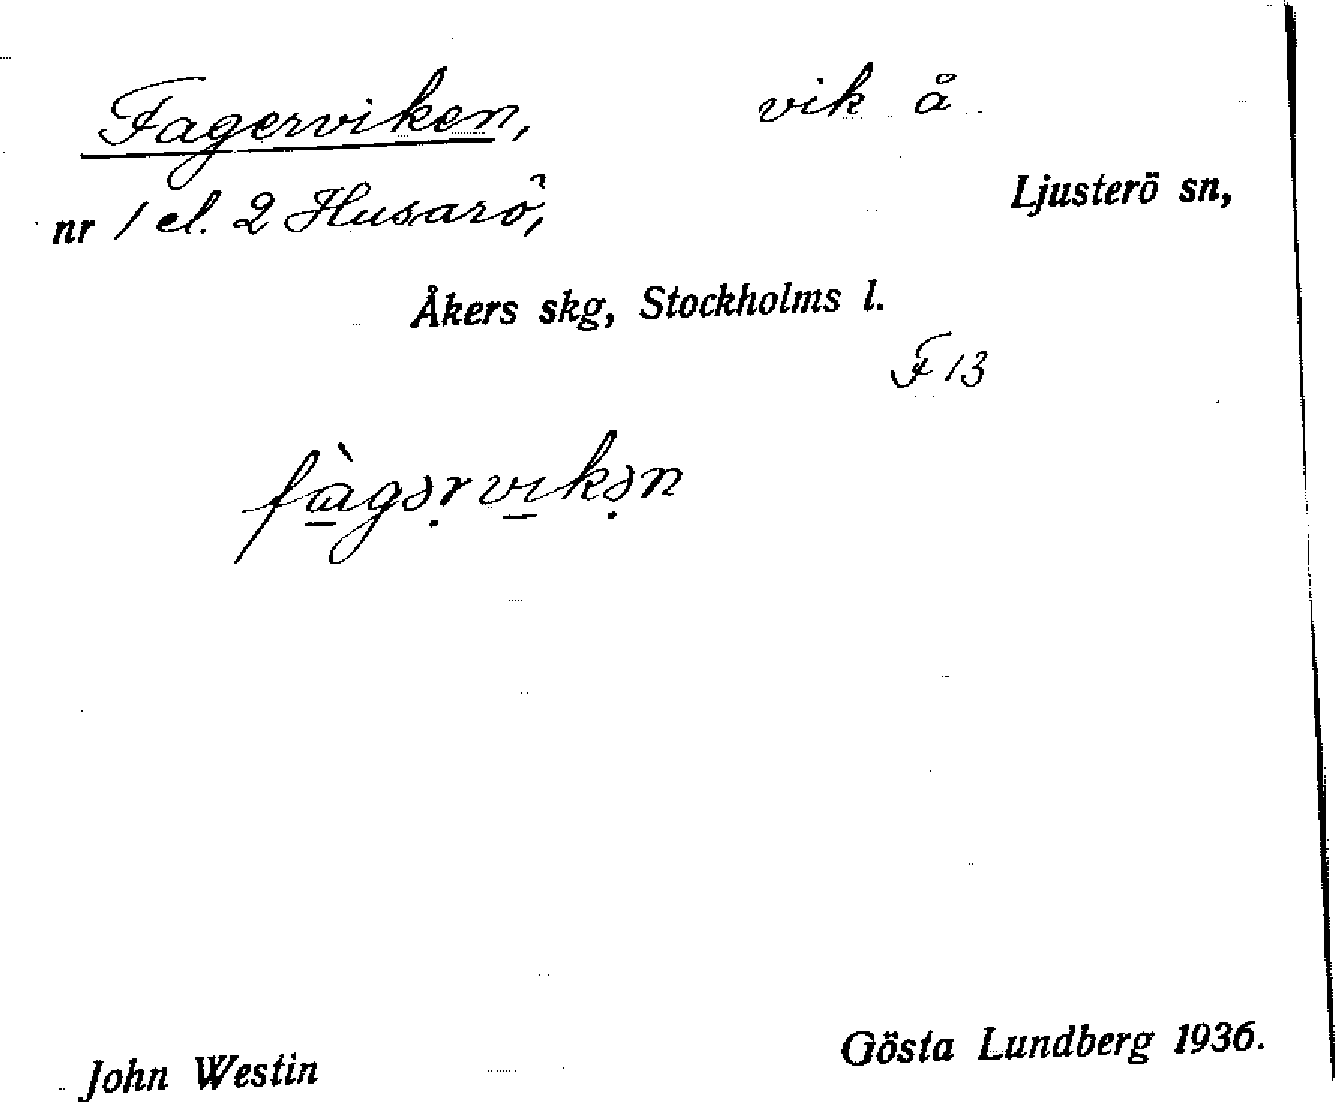 Fagerviken, vik å
nr 1 el. 2 Husarö, Ljusterö sn,
Åkers skg, Stockholms l.
F 13
fàgəṛvıkə̣n
John Westin Gösta Lundberg 1936.